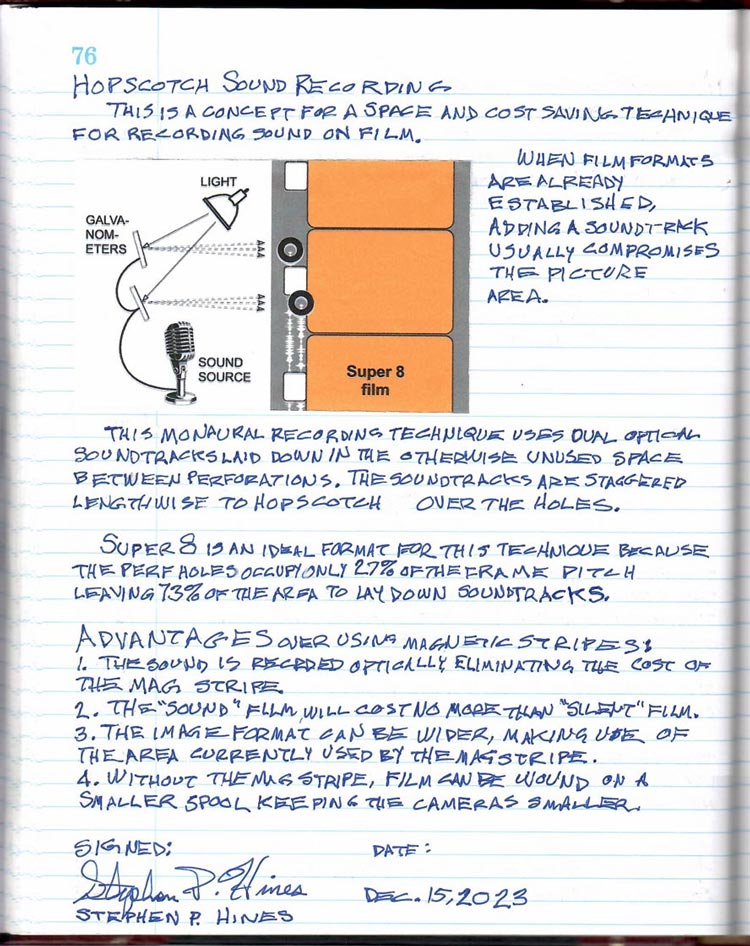 76
HOPSCOTCH SOUND RECORDING
THIS IS A CONCEPT FOR A SPACE AND COST SAVING TECHNIQUE
FOR RECORDING SOUND ON FILM.
LIGHT
GALVA-
NOM-
ETERS
SOUND
SOURCE
Super 8
film
WHEN FILM FORMATS
ARE ALREADY
ESTABLISHED,
ADDING A SOUNDTRACK
USUALLY COMPROMISES
THE PICTURE
AREA.
THIS MONAURAL RECORDING TECHNIQUE USES DUAL OPTICAL
SOUNDTRACKS LAID DOWN IN THE OTHERWISE UNUSED SPACE
BETWEEN PERFORATIONS. THE SOUNDTRACKS ARE STAGGERED
LENGTHWISE TO HOPSCOTCH OVER THE HOLES.
SUPER 8 IS AN IDEAL FORMAT FOR THIS TECHNIQUE BECAUSE
THE PERF HOLES OCCUPY ONLY 27% OF THE FRAME PITCH
LEAVING 73% OF THE AREA TO LAY DOWN SOUNDTRACKS.
ADVANTAGES OVER USING MAGNETIC STRIPES:
1. THE SOUND IS RECRDED OPTICALLY ELIMINATING THE COST OF
THE MAG STRIPE.
2. THE "SOUND" FILM WILL COST NO MORE THAN "SILENT" FILM.
3. THE IMAGE FORMAT CAN BE WIDER, MAKING USE OF
THE AREA CURRENTLY USED BY THE MAG STRIPE.
4. WITHOUT THE MAG STRIPE, FILM CAN BE WOUND ON A
SMALLER SPOOL KEEPING THE CAMERAS SMALLER.
SIGNED: DATE:
Stephen P. Hines DEC. 15, 2023
STEPHEN P. HINES